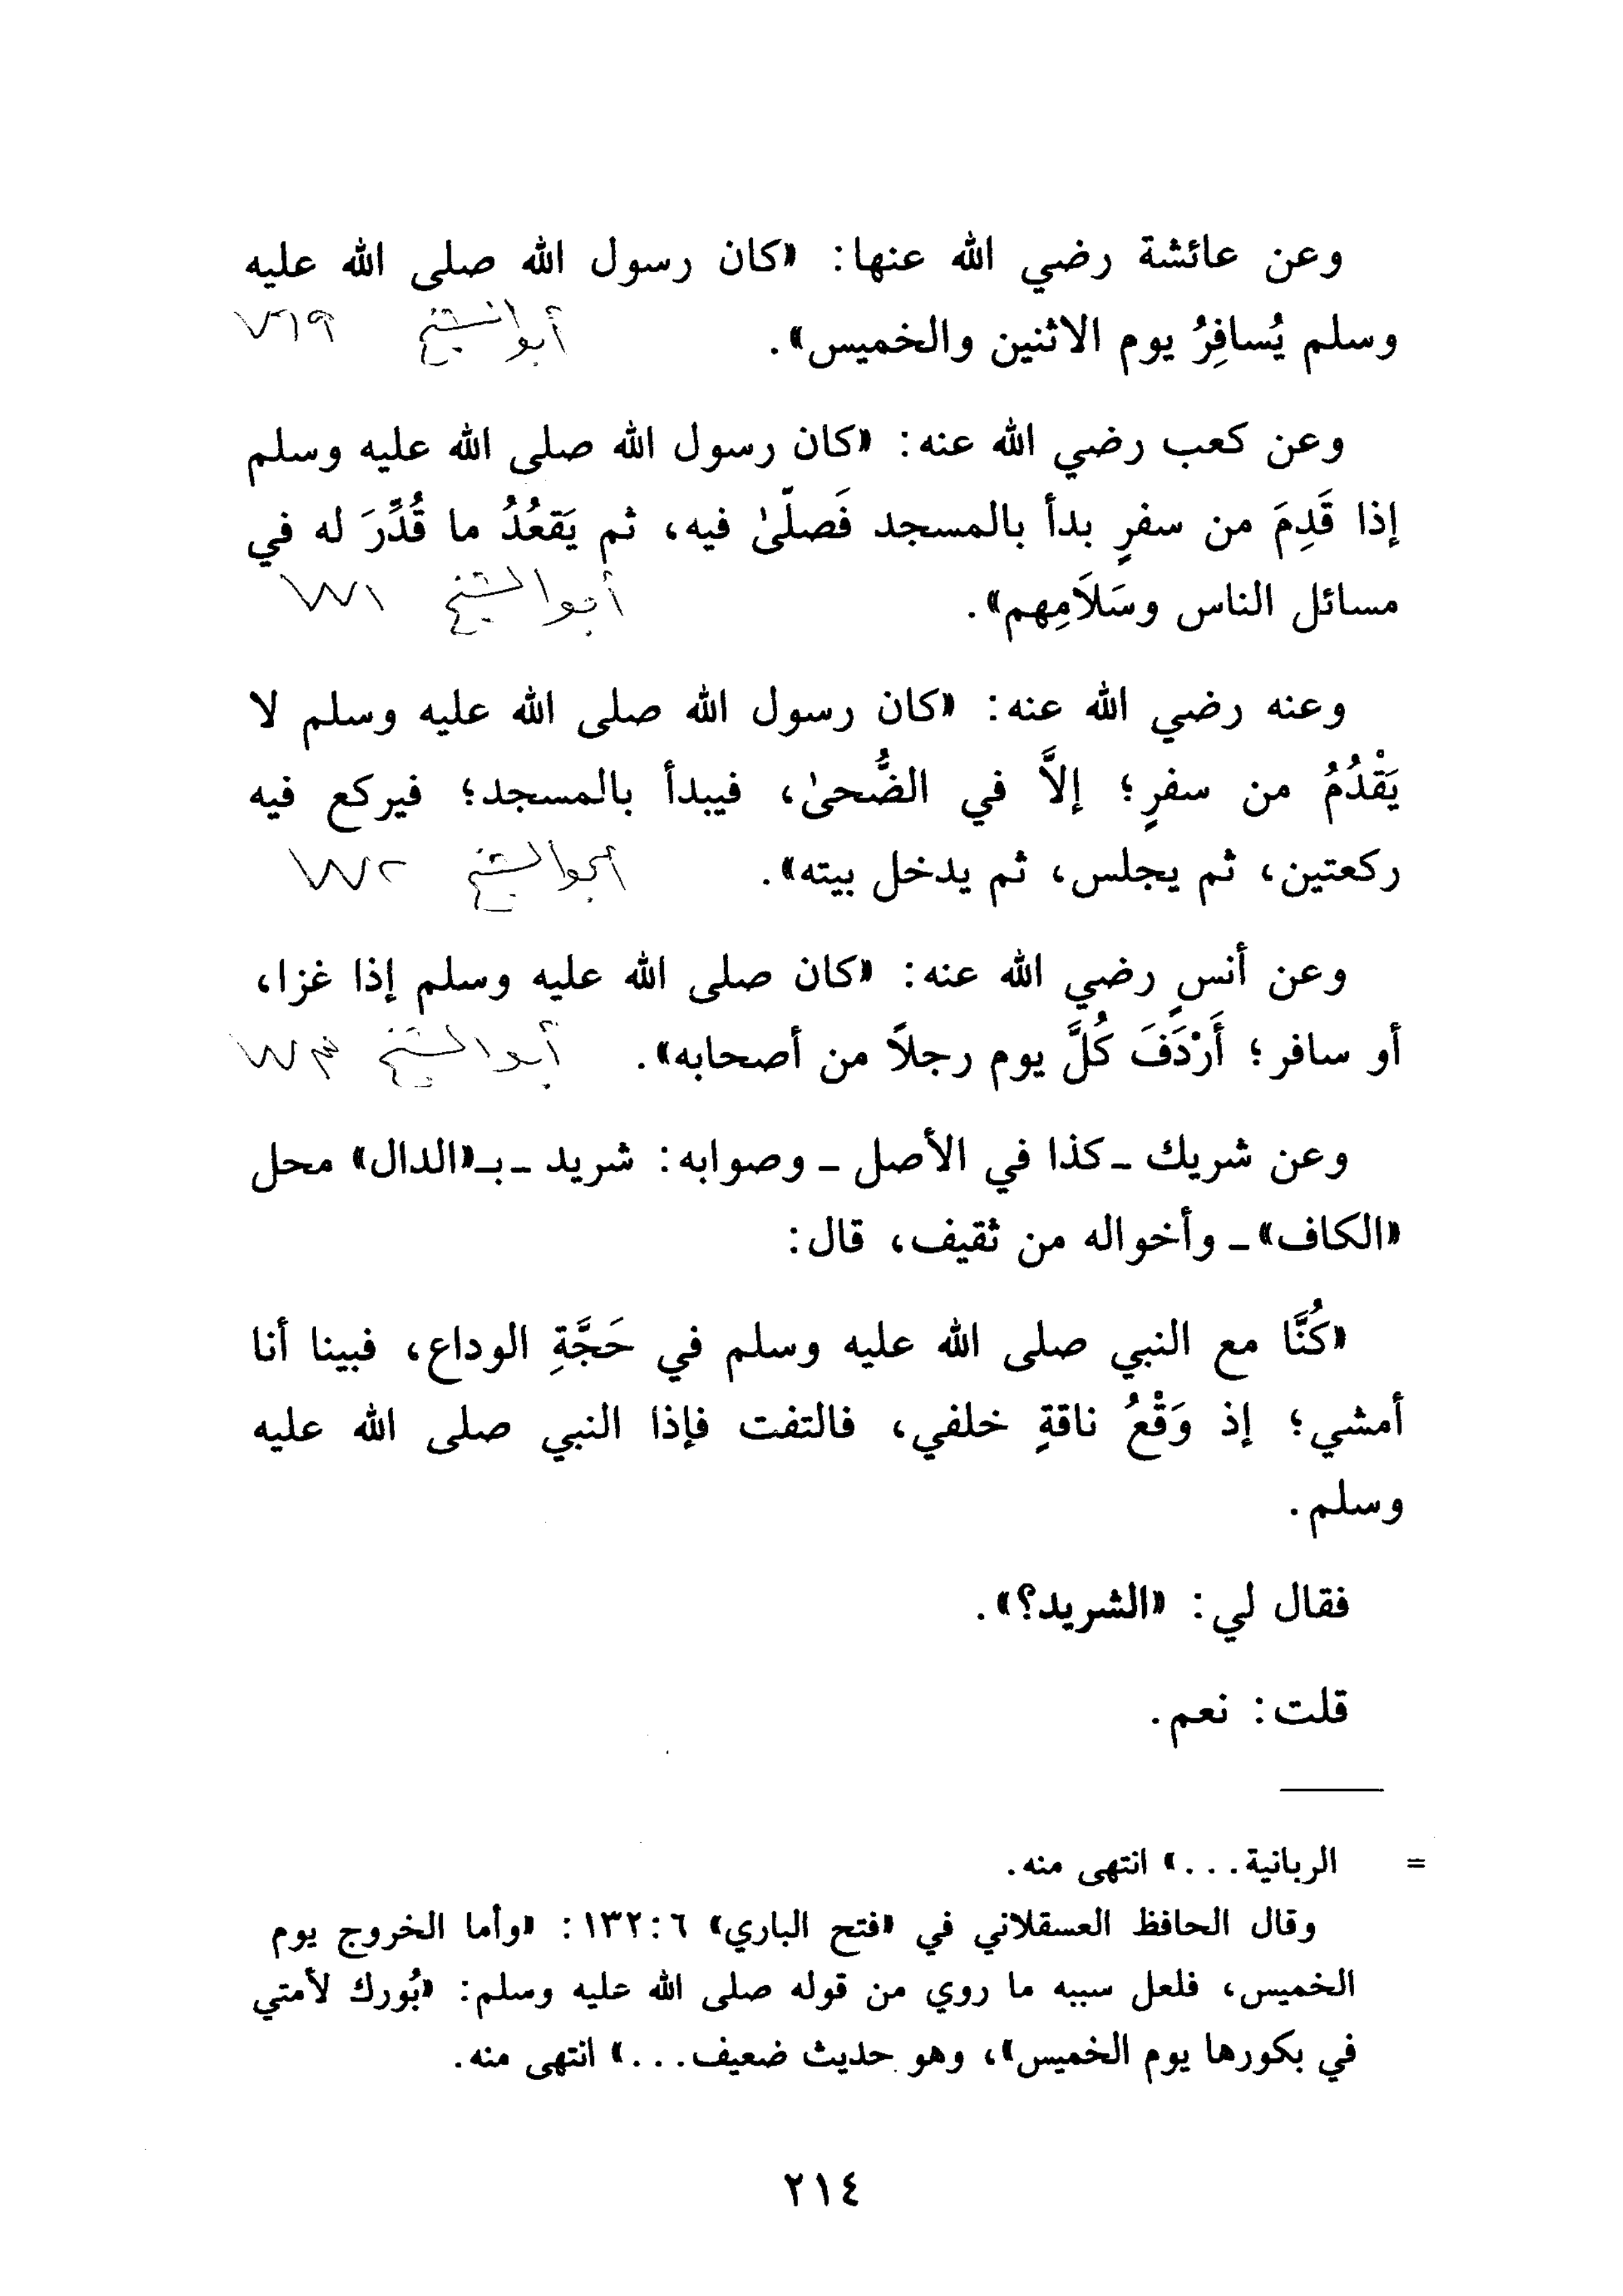 وعن عائشة رضي الله عنها: «كان رسول الله صلى الله عليه
وسلم يُسافِرُ يوم الاثنين والخميس». أبو الشيخ ٧٦٩
وعن كعب رضي الله عنه: «كان رسول الله صلى الله عليه وسلم
إذا قَدِمَ من سفرٍ بدأ بالمسجد فَصلّىٰ فيه، ثم يَقعُدُ ما قُدِّرَ له في
مسائل الناس وسَلَامِهم». أبو الشيخ ٧٧١
وعنه رضي الله عنه: «كان رسول الله صلى الله عليه وسلم لا
يَقْدُمُ من سفرٍ؛ إلاَّ في الضُّحىٰ، فيبدأ بالمسجد؛ فيركع فيه
ركعتين، ثم يجلس، ثم يدخل بيته». أبو الشيخ ٧٧٢
وعن أنسٍ رضي الله عنه: «كان صلى الله عليه وسلم إذا غزا،
أو سافر؛ أَرْدَفَ كُلَّ يوم رجلاً من أصحابه». أبو الشيخ ٧٧٣
وعن شريك ـ كذا في الأصل ـ وصوابه: شريد ـ بـ«الدال» محل
«الكاف» ـ وأخواله من ثقيف، قال:
«كُنَّا مع النبي صلى الله عليه وسلم في حَجَّةِ الوداع، فبينا أنا
أمشي؛ إذ وَقْعُ ناقةٍ خلفي، فالتفت فإذا النبي صلى الله عليه
وسلم.
فقال لي: «الشريد؟».
قلت: نعم.
= الربانية...» انتهى منه.
وقال الحافظ العسقلاني في «فتح الباري» ٦:١٣٢: «وأما الخروج يوم
الخميس، فلعل سببه ما روي من قوله صلى الله عليه وسلم: «بُورك لأمتي
في بكورها يوم الخميس»، وهو حديث ضعيف...» انتهى منه.
٢١٤